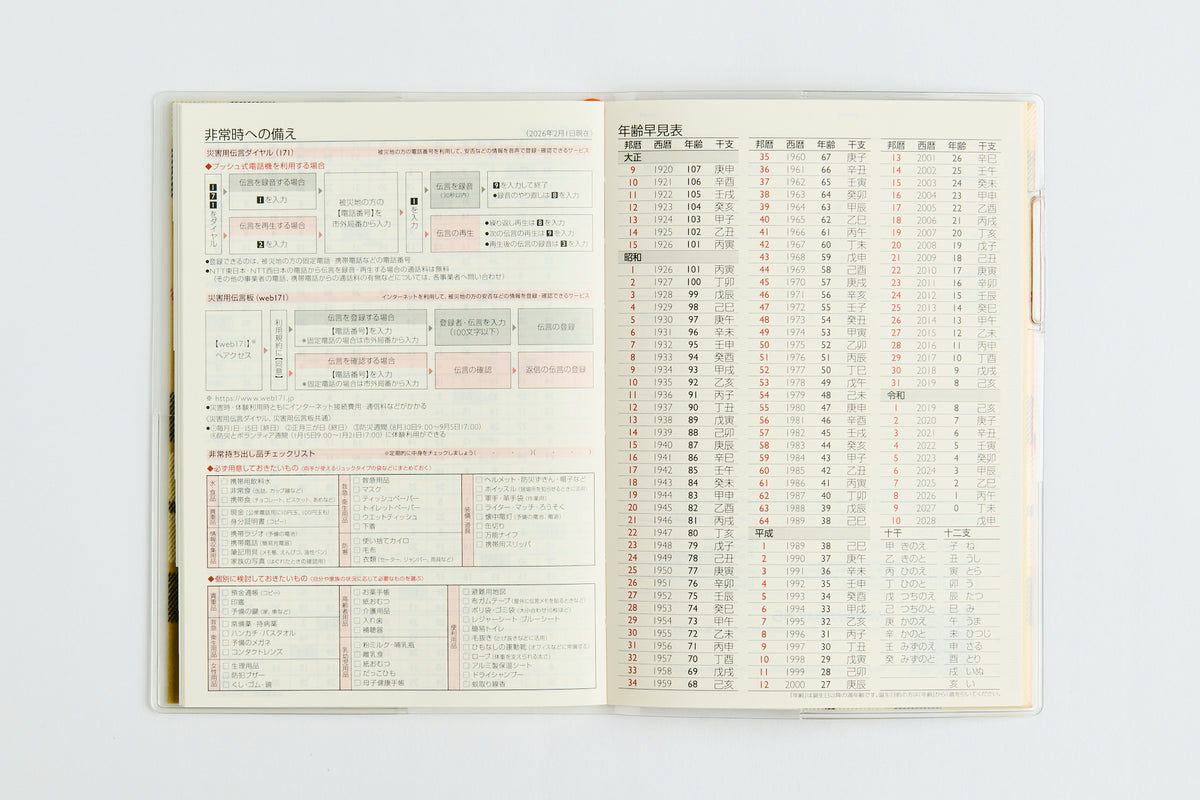 非常時への備え
(2026年2月1日現在)
災害用伝言ダイヤル(171)
被災地の方の電話番号を利用して、安否などの情報を音声で登録・確認できるサービス
◆プッシュ式電話機を利用する場合
171をダイヤル
伝言を録音する場合
1を入力
伝言を再生する場合
2を入力
被災地の方の
【電話番号】を
市外局番から入力
1を入力
伝言を録音
(30秒以内)
9を入力して終了
●録音のやり直しは8を入力
伝言の再生
●繰り返し再生は8を入力
●次の伝言の再生は9を入力
●再生後の伝言の録音は3を入力
●登録できるのは、被災地の方の固定電話・携帯電話などの電話番号
●NTT東日本・NTT西日本の電話から伝言を録音・再生する場合の通話料は無料
(その他の事業者の電話、携帯電話からの通話料の有無などについては、各事業者へ問い合わせ)
災害用伝言板(web171)
インターネットを利用して、被災地の方の安否などの情報を登録・確認できるサービス
【web171】※
へアクセス
利用規約に【同意】
伝言を登録する場合
【電話番号】を入力
※固定電話の場合は市外局番から入力
登録者・伝言を入力
(100文字以下)
伝言の登録
伝言を確認する場合
【電話番号】を入力
※固定電話の場合は市外局番から入力
伝言の確認
返信の伝言の登録
※ https://www.web171.jp
●災害時・体験利用時ともにインターネット接続費用・通信料などがかかる
〈災害用伝言ダイヤル、災害用伝言板共通〉
●①毎月1日・15日(終日) ②正月三が日(終日) ③防災週間(8月30日9:00~9月5日17:00)
④防災とボランティア週間(1月15日9:00~1月21日17:00)に体験利用ができる
非常持ち出し品チェックリスト
※定期的に中身をチェックしましょう( ・ ・ )( ・ ・ )
◆必ず用意しておきたいもの(両手が使えるリュックタイプの袋などにまとめておく)
水・食品
□携帯用飲料水
□非常食(缶詰、カップ麺など)
□携帯食(チョコレート、ビスケット、あめなど)
貴重品
□現金(公衆電話用に10円玉、100円玉も)
□身分証明書(コピー)
情報収集用品
□携帯ラジオ(予備の電池)
□携帯電話(簡易充電器)
□筆記用具(メモ帳、えんぴつ、油性ペン)
□家族の写真(はぐれたときの確認用)
救急・衛生用品
□救急用品
□マスク
□ティッシュペーパー
□トイレットペーパー
□ウエットティッシュ
□下着
防寒
□使い捨てカイロ
□毛布
□衣類(セーター、ジャンパー、雨具など)
装備・道具
□ヘルメット・防災ずきん・帽子など
□ホイッスル(居場所を知らせるときに活用)
□軍手・革手袋(作業用)
□ライター・マッチ・ろうそく
□懐中電灯(予備の電池、電源)
□缶切り
□万能ナイフ
□携帯用スリッパ
◆個別に検討しておきたいもの(自分や家族の状況に応じて必要なものを選ぶ)
貴重品
□預金通帳(コピー)
□印鑑
□予備の鍵(家、車など)
救急・衛生用品
□常備薬・持病薬
□ハンカチ・バスタオル
□予備のメガネ
□コンタクトレンズ
女性用品
□生理用品
□防犯ブザー
□くし・ゴム・鏡
高齢者用品
□お薬手帳
□紙おむつ
□介護用品
□入れ歯
□補聴器
乳幼児用品
□粉ミルク・哺乳瓶
□離乳食
□紙おむつ
□だっこひも
□母子健康手帳
便利用品
□避難用地図
□布ガムテープ(屋外に伝言メモを貼るときなど)
□ポリ袋・ゴミ袋(大小合わせ10枚ほど)
□レジャーシート・ブルーシート
□簡易トイレ
□毛抜き(とげ抜きなどに活用)
□ひもなしの運動靴(オフィスなどに常備する)
□ロープ(体重を支えられる太さ)
□アルミ製保温シート
□ドライシャンプー
□蚊取り線香
年齢早見表
邦暦 西暦 年齢 干支
大正
9 1920 107 庚申
10 1921 106 辛酉
11 1922 105 壬戌
12 1923 104 癸亥
13 1924 103 甲子
14 1925 102 乙丑
15 1926 101 丙寅
昭和
1 1926 101 丙寅
2 1927 100 丁卯
3 1928 99 戊辰
4 1929 98 己巳
5 1930 97 庚午
6 1931 96 辛未
7 1932 95 壬申
8 1933 94 癸酉
9 1934 93 甲戌
10 1935 92 乙亥
11 1936 91 丙子
12 1937 90 丁丑
13 1938 89 戊寅
14 1939 88 己卯
15 1940 87 庚辰
16 1941 86 辛巳
17 1942 85 壬午
18 1943 84 癸未
19 1944 83 甲申
20 1945 82 乙酉
21 1946 81 丙戌
22 1947 80 丁亥
23 1948 79 戊子
24 1949 78 己丑
25 1950 77 庚寅
26 1951 76 辛卯
27 1952 75 壬辰
28 1953 74 癸巳
29 1954 73 甲午
30 1955 72 乙未
31 1956 71 丙申
32 1957 70 丁酉
33 1958 69 戊戌
34 1959 68 己亥
邦暦 西暦 年齢 干支
35 1960 67 庚子
36 1961 66 辛丑
37 1962 65 壬寅
38 1963 64 癸卯
39 1964 63 甲辰
40 1965 62 乙巳
41 1966 61 丙午
42 1967 60 丁未
43 1968 59 戊申
44 1969 58 己酉
45 1970 57 庚戌
46 1971 56 辛亥
47 1972 55 壬子
48 1973 54 癸丑
49 1974 53 甲寅
50 1975 52 乙卯
51 1976 51 丙辰
52 1977 50 丁巳
53 1978 49 戊午
54 1979 48 己未
55 1980 47 庚申
56 1981 46 辛酉
57 1982 45 壬戌
58 1983 44 癸亥
59 1984 43 甲子
60 1985 42 乙丑
61 1986 41 丙寅
62 1987 40 丁卯
63 1988 39 戊辰
64 1989 38 己巳
平成
1 1989 38 己巳
2 1990 37 庚午
3 1991 36 辛未
4 1992 35 壬申
5 1993 34 癸酉
6 1994 33 甲戌
7 1995 32 乙亥
8 1996 31 丙子
9 1997 30 丁丑
10 1998 29 戊寅
11 1999 28 己卯
12 2000 27 庚辰
邦暦 西暦 年齢 干支
13 2001 26 辛巳
14 2002 25 壬午
15 2003 24 癸未
16 2004 23 甲申
17 2005 22 乙酉
18 2006 21 丙戌
19 2007 20 丁亥
20 2008 19 戊子
21 2009 18 己丑
22 2010 17 庚寅
23 2011 16 辛卯
24 2012 15 壬辰
25 2013 14 癸巳
26 2014 13 甲午
27 2015 12 乙未
28 2016 11 丙申
29 2017 10 丁酉
30 2018 9 戊戌
31 2019 8 己亥
令和
1 2019 8 己亥
2 2020 7 庚子
3 2021 6 辛丑
4 2022 5 壬寅
5 2023 4 癸卯
6 2024 3 甲辰
7 2025 2 乙巳
8 2026 1 丙午
9 2027 0 丁未
10 2028 戊申
十干 十二支
甲 きのえ 子 ね
乙 きのと 丑 うし
丙 ひのえ 寅 とら
丁 ひのと 卯 う
戊 つちのえ 辰 たつ
己 つちのと 巳 み
庚 かのえ 午 うま
辛 かのと 未 ひつじ
壬 みずのえ 申 さる
癸 みずのと 酉 とり
戌 いぬ
亥 い
「年齢」は誕生日以降の満年齢です。誕生日前の方は「年齢」から1歳を引いてください。